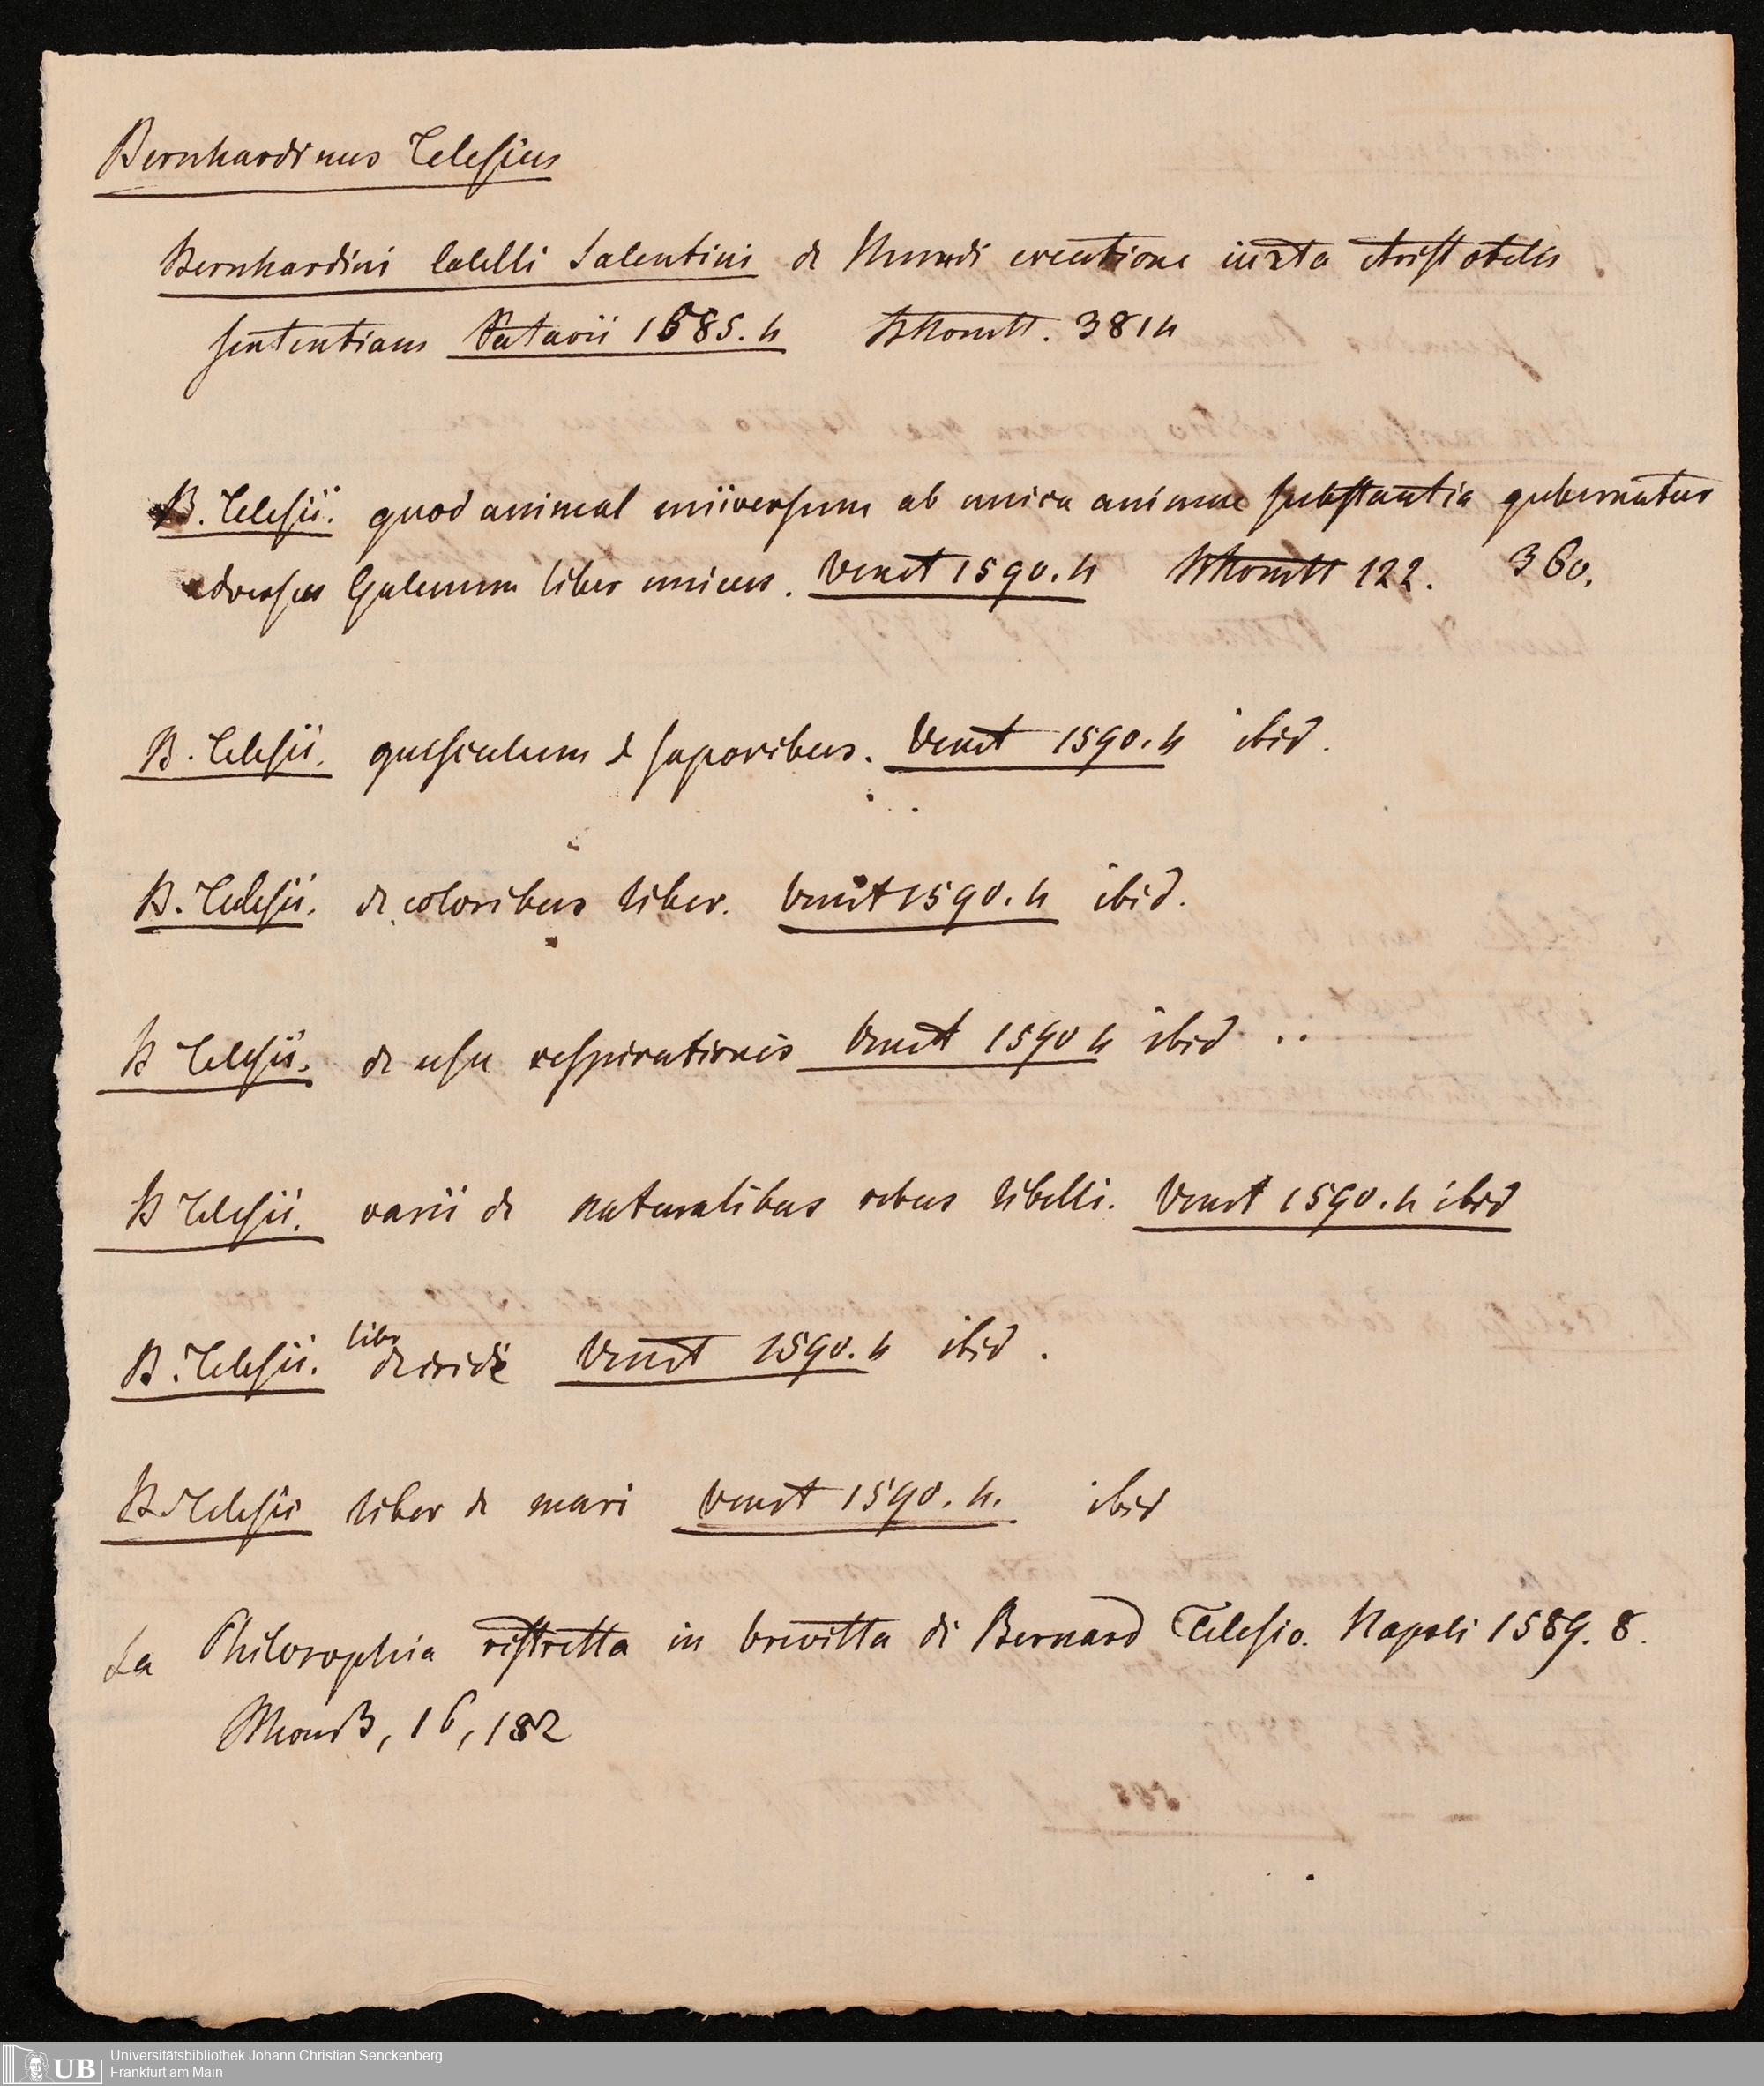 Bernhardinus Telesius
Bernhardini Salentini de Mundi creatione iuxta Aristotelis
sententiam Patavii 1585. 4 381 4
B. Telesii. quod animal universum ab unica animae substantia gubernatur
adversus Galenum liber unicus. Venet 1590. 4 122. 360.
B. Telesii. opusculum d saporibus. Venet 1590. 4 ibid.
B. Telesii. de coloribus liber. Venet 1590. 4 ibid.
B Telesii. de usu respirationis Venet 1590 4 ibid
B Telesii. varii de naturalibus rebus libelli. Venet 1590. 4 ibid
B. Telesii. liber de iride Venet 1590. 4 ibid.
B. Telesii liber de mari Venet 1590. 4. ibid
La Philosophia ristretta in brevitta di Bernard Telesio. Napoli 1589. 8.
16, 182
UB Universitätsbibliothek Johann Christian Senckenberg
Frankfurt am Main